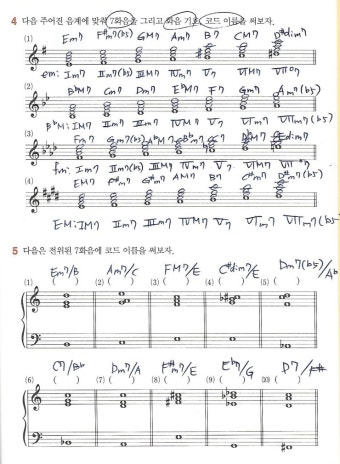 4 다음 주어진 음계에 맞춰 7화음을 그리고 화음 기호, 코드 이름을 써보자.
(1) Em7 F#m7(b5) GM7 Am7 B7 CM7 D#dim7
em: Im7 IIm7(b5) IIIM7 IVm7 V7 VIM7 VII°7
(2) BbM7 Cm7 Dm7 EbM7 F7 Gm7 Am7(b5)
BbM: IM7 IIm7 IIIm7 IVM7 V7 VIm7 VIIm7(b5)
(3) Fm7 Gm7(b5) AbM7 Bbm7 C7 DbM7 Edim7
fm: Im7 IIm7(b5) IIIM7 IVm7 V7 VIM7 VII°7
(4) EM7 F#m7 G#m7 AM7 B7 C#m7 D#m7(b5)
EM: IM7 IIm7 IIIm7 IVM7 V7 VIm7 VIIm7(b5)
5 다음은 전위된 7화음에 코드 이름을 써보자.
Em7/B Am7/C FM7/E C#dim7/E Dm7(b5)/Ab
(1) ( ) (2) ( ) (3) ( ) (4) ( ) (5) ( )
C7/Bb Dm7/A F#m7/E Eb7/G D7/F#
(6) ( ) (7) ( ) (8) ( ) (9) ( ) (10) ( )